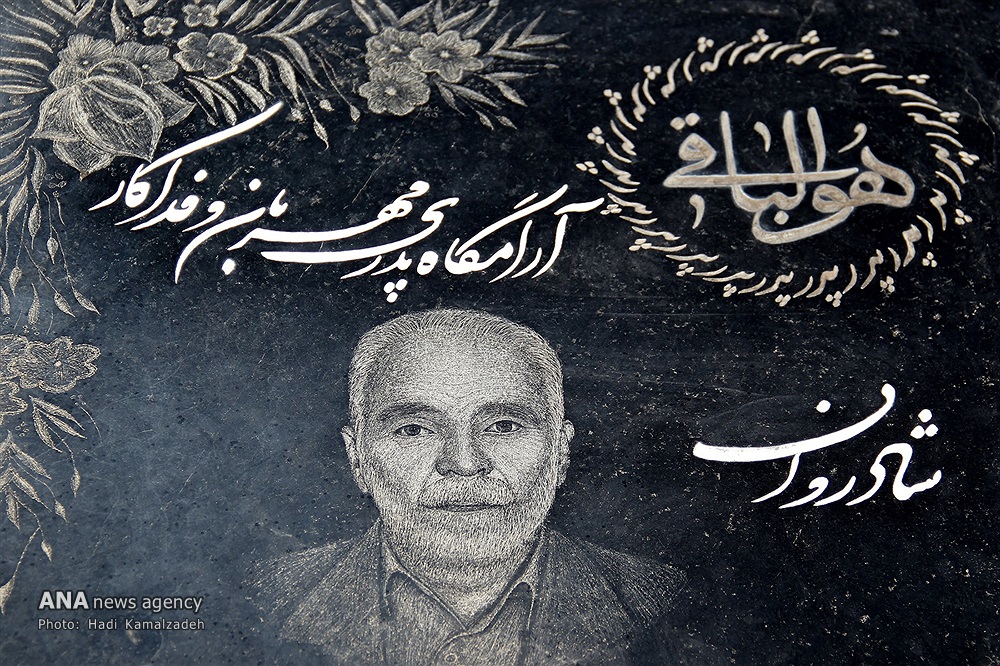 هوالباقی
آرامگاه پدری مهربان و فداکار
شادروان
ANA news agency
Photo: Hadi Kamalzadeh